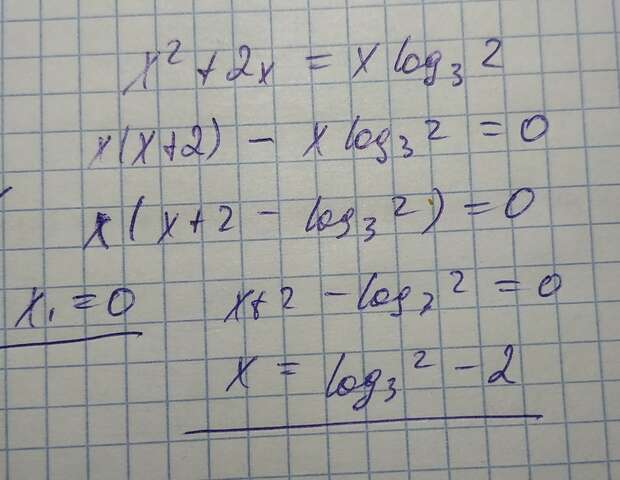 x² + 2x = x log₃ 2
x(x+2) - x log₃ 2 = 0
x(x+2 - log₃ 2) = 0
x₁ = 0 x+2 - log₃ 2 = 0
x = log₃ 2 - 2